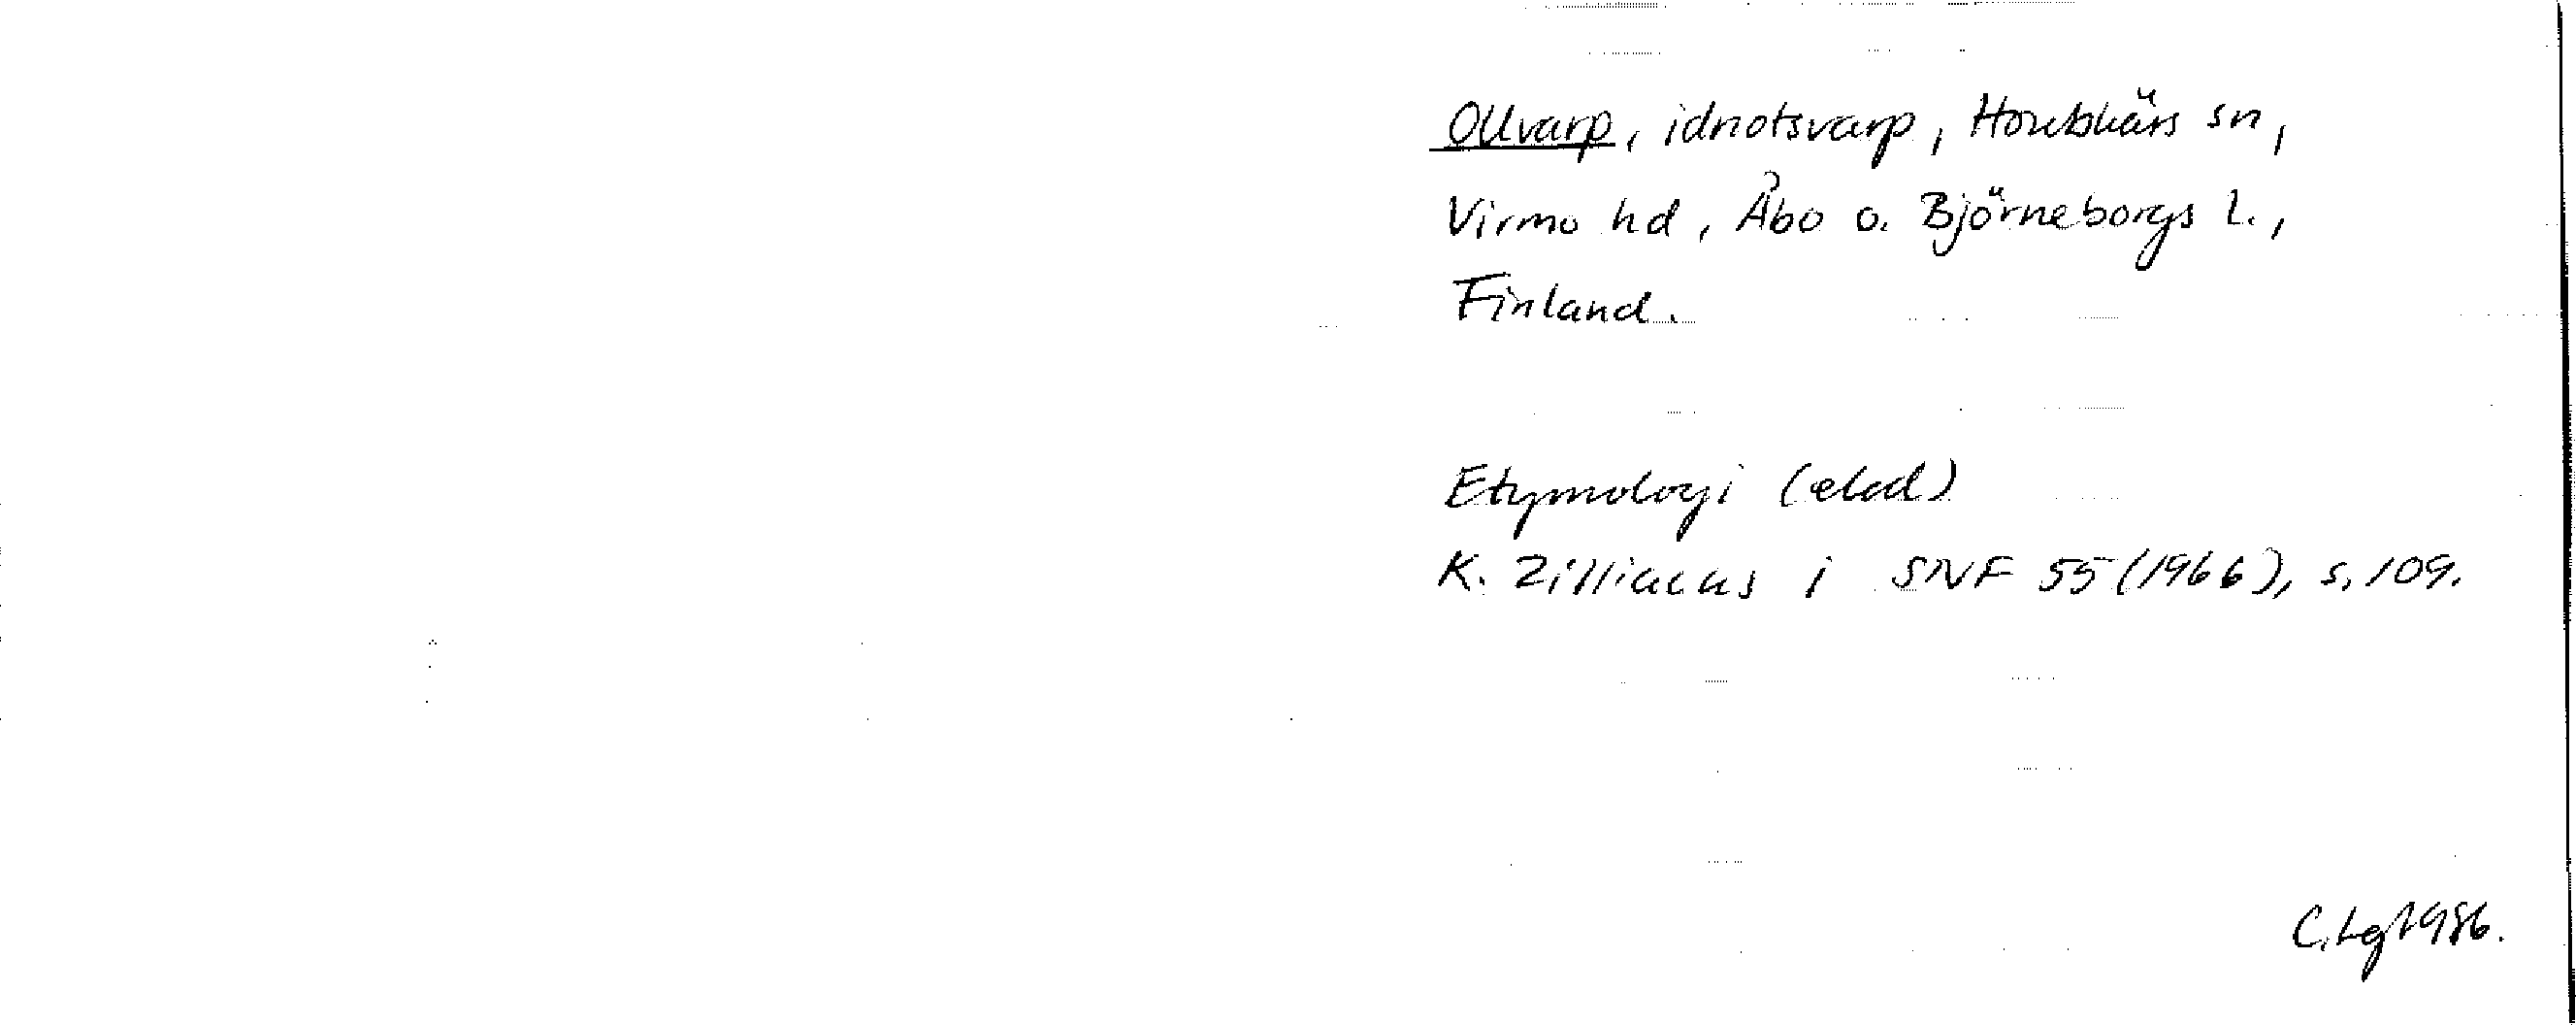 Ollvarp, idnotsvarp, Houtskärs sn,
Virmo hd, Åbo o. Björneborgs l.,
Finland.
Etymologi (elod)
K. Zilliacus i SNF 55 (1966), s. 109.
C. Lg 1986.